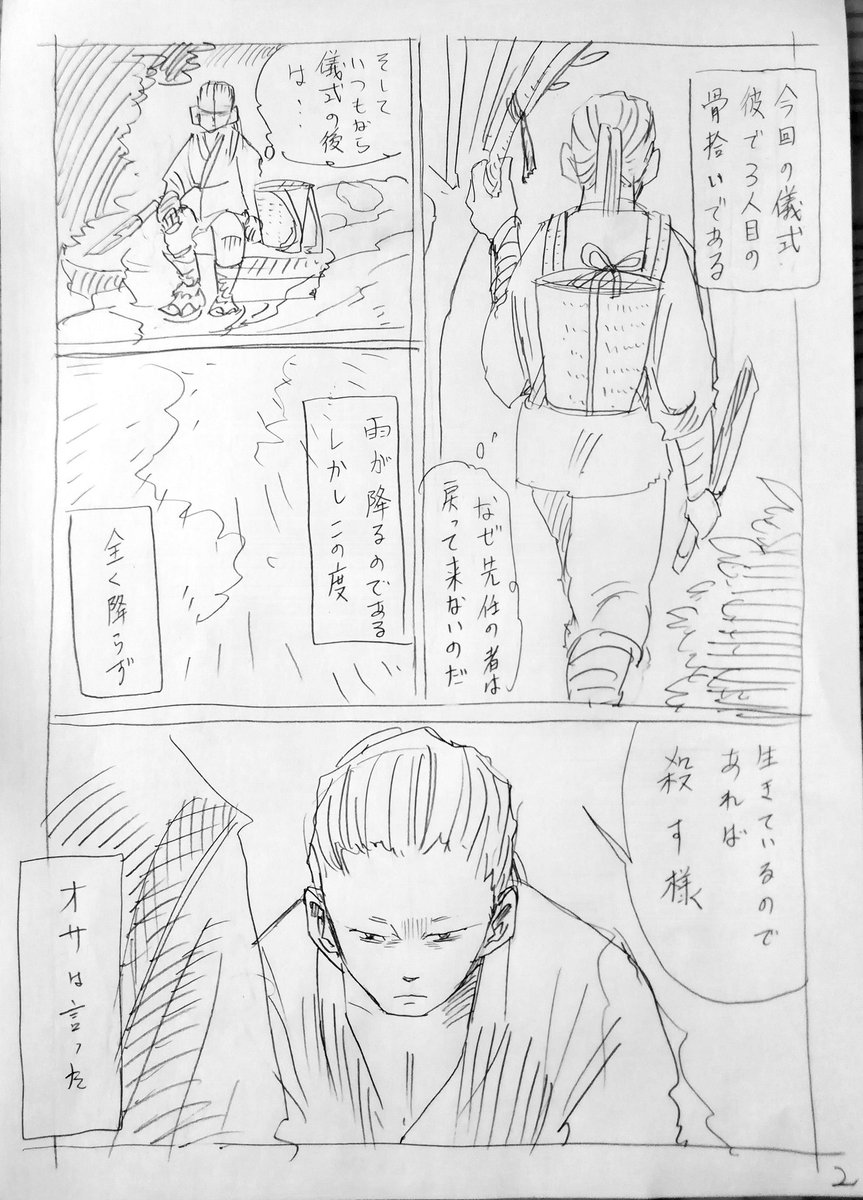 今回の儀式
彼で3人目の
骨拾いである
なぜ先任の者は
戻って来ないのだ
そして
いつもなら
儀式の後
は…
雨が降るのである
しかしこの度
全く降らず
生きているので
あれば
殺す様
オサは言った
2